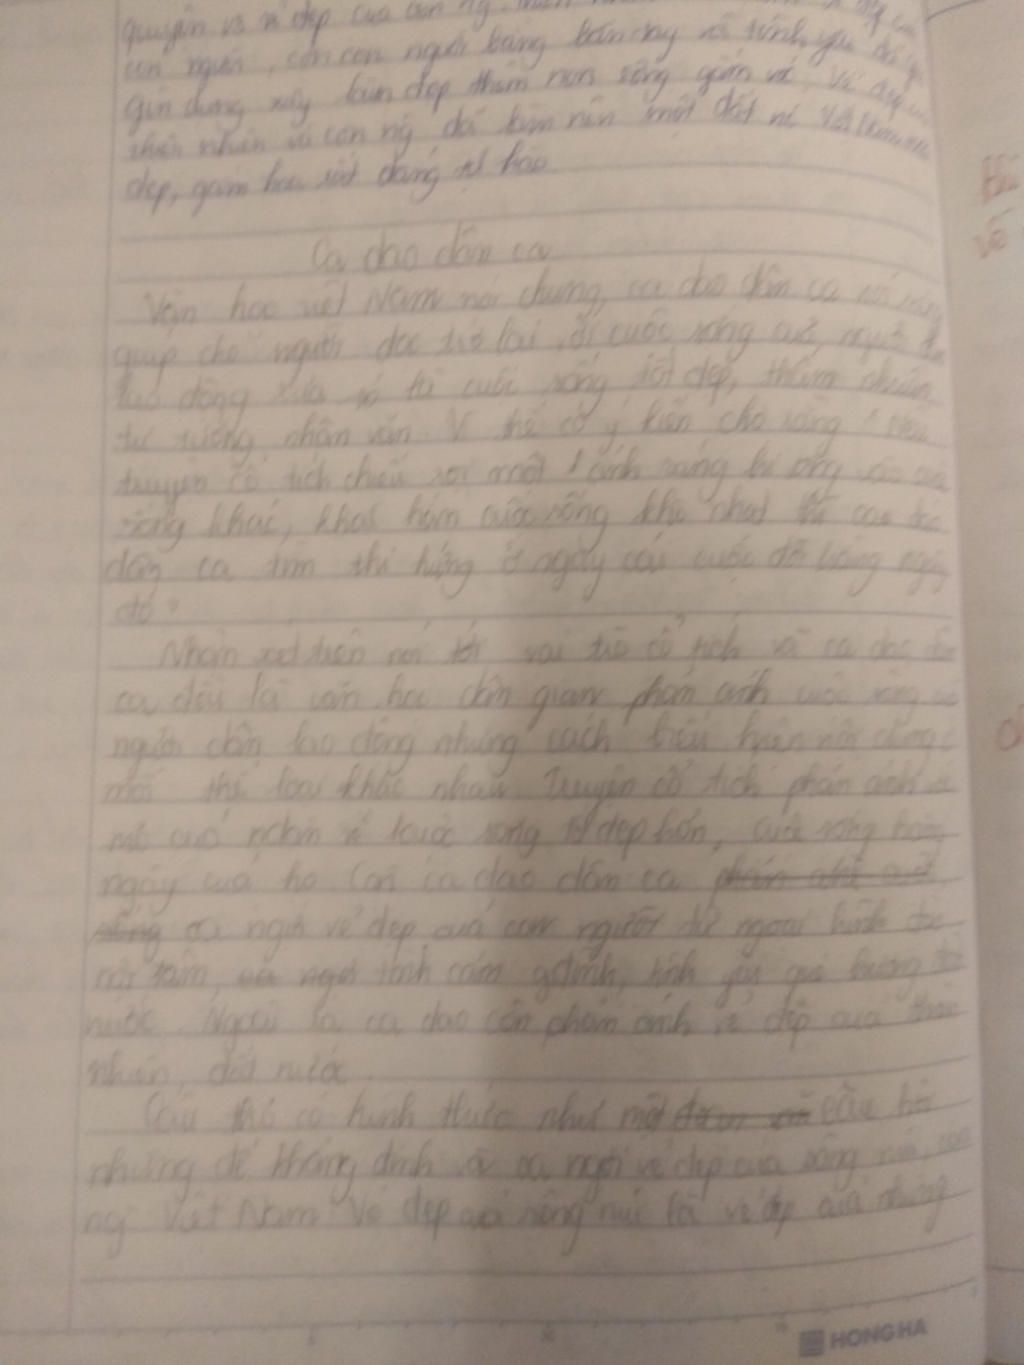 quyện vô vẻ đẹp của con ng
con người, còn con người bằng bàn tay và tình yêu
gìn dựng xây làm đẹp thêm non sông gấm vóc. Vẻ đẹp
thiên nhiên và con ng đã làm nên một đất nc Việt Nam
đẹp, gấm hoa rất đáng tự hào
Ca dao dân ca
Văn học việt Nam nói chung, ca dao dân ca nói riêng
giúp cho người đọc trở lại cuộc sống của người
lao động xưa là cuộc sống tốt đẹp, thấm nhuần
tư tưởng nhân văn. Vì thế có ý kiến cho rằng "nếu
truyện cổ tích chiếu rọi một ánh sáng vào cuộc
sống khác, khác hẳn cuộc sống thì ca dao
dân ca tìm thi hứng ở ngay cái cuộc đời hằng ngày
đó"
Nhận xét trên nói tới vai trò cổ tích và ca dao dân
ca đều là văn học dân gian phản ánh cuộc sống của
người dân lao động nhưng cách biểu hiện nội dung
mỗi thể loại khác nhau. Truyện cổ tích phản ánh
mơ của nhân về cuộc sống tốt đẹp hơn, cuộc sống hằng
ngày của họ Còn ca dao dân ca phản ánh cuộc
sống ca ngợi vẻ đẹp của con người từ ngoại hình
nội tâm, ca ngợi tình cảm gđình, tình yêu quê hương đất
nước. Ngoài ra ca dao còn phản ánh vẻ đẹp của thiên
nhiên, đất nước.
Câu thơ có hình thức như một câu hỏi
nhưng để khẳng định và ca ngợi vẻ đẹp của sông núi, con
ng Việt Nam. Vẻ đẹp của sông núi là vẻ đẹp của những
HONG HA